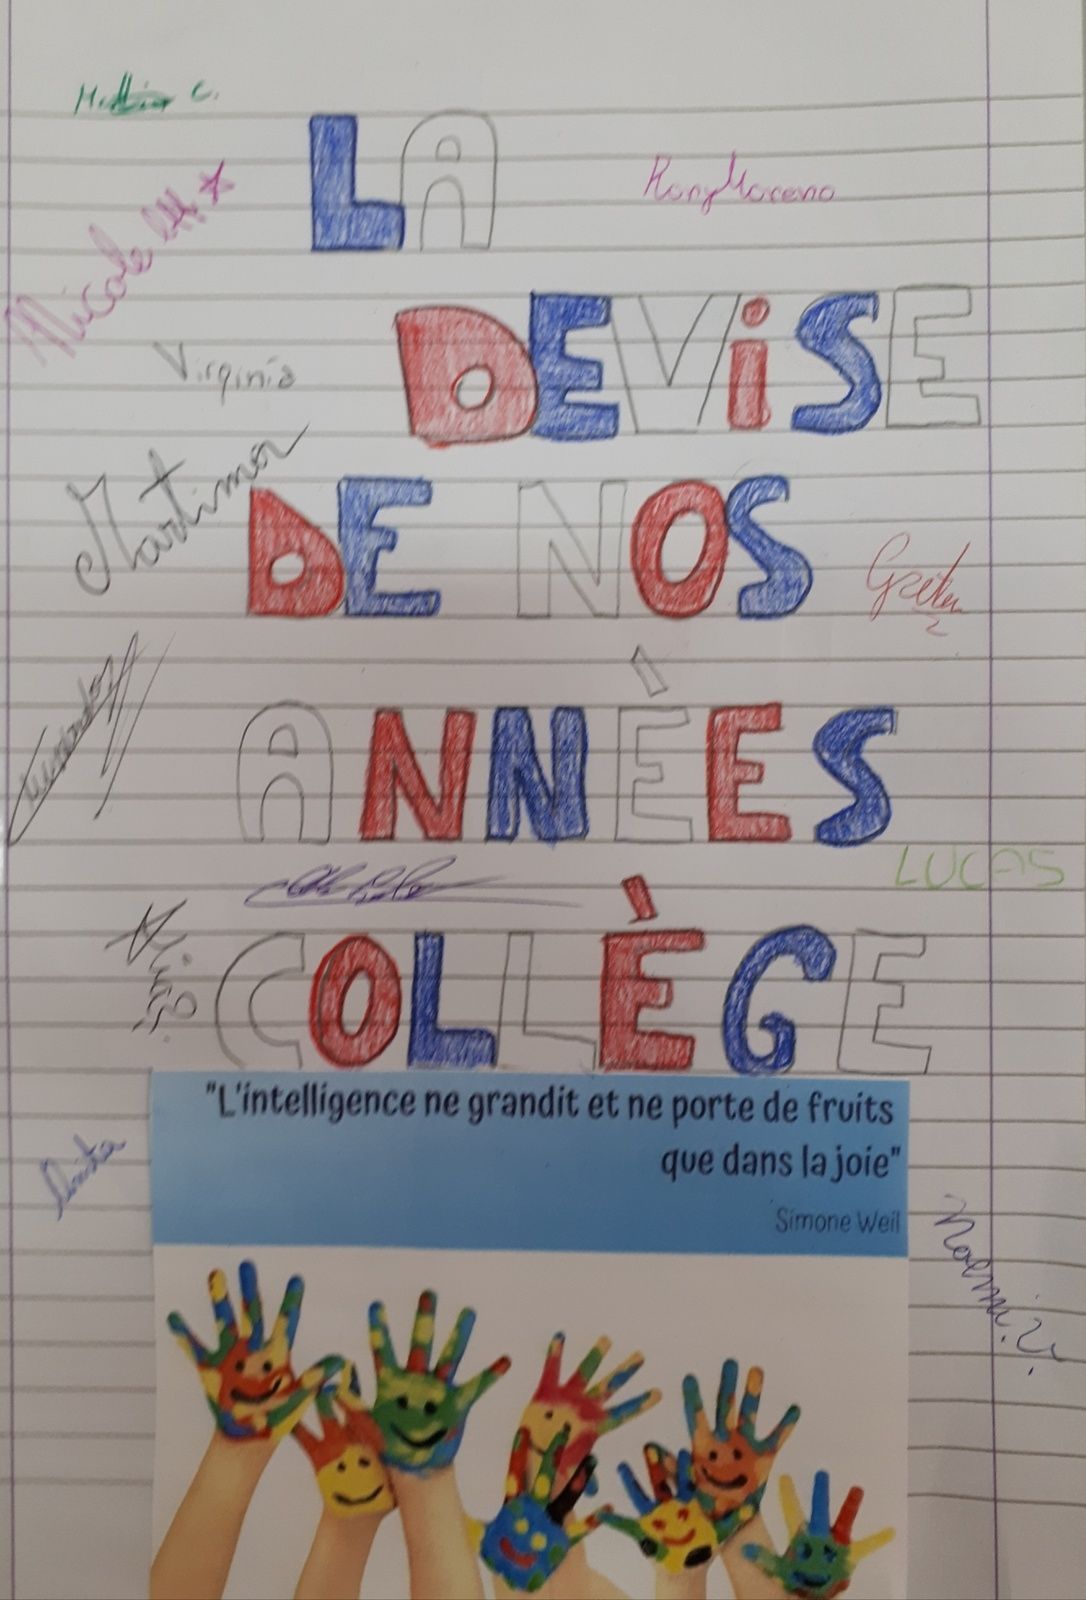 C.
LA
Rony Moreno
Nicole
DEViSE
Virginia
Martimor
DE NOS
ANNÈES
LUCAS
COLLÈGE
"L'intelligence ne grandit et ne porte de fruits
que dans la joie"
Simone Weil
Anita
Noemi.V.